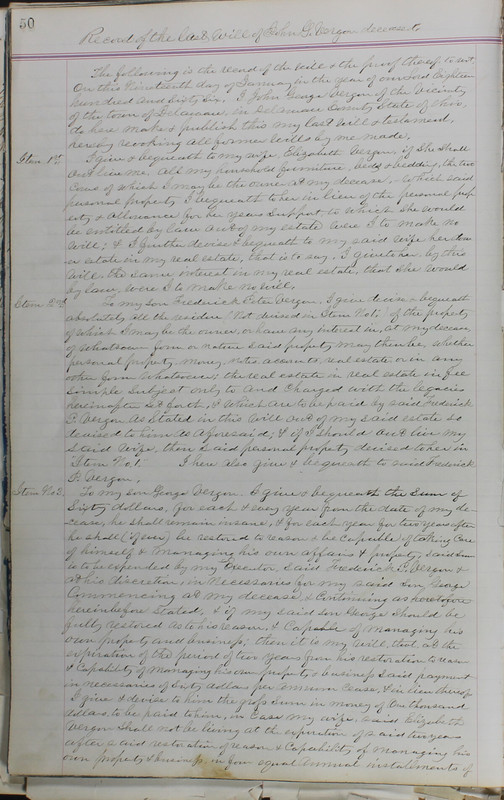 50
Record of the last Will of John G. Vergon deceased
The following is the record of the will & the proof thereof to wit,
On this Nineteenth day of January in the year of our Lord Eighteen
hundred and Sixty Six. I John George Vergon of the Vicinity
of the town of Delaware, in Delaware County State of Ohio,
do here make & publish this my last will & testament,
hereby revoking all former wills by me made,
Item 1st I give & bequeath to my wife, Elizabeth Vergon, if She Shall
out live me. All my household furniture, beds & bedding, the two
Cows of which I may be the owner at my decease, which said
personal property I bequeath to her in lieu of the personal prop
erty & Allowance for her years Support to which She would
be entitled by law out of my estate were I to make no
will; & I further devise & bequeath to my said wife her dower
in estate in my real estate, that is to say, I give to her by this
will the same interest in my real estate, that She would
by law, were I to make no will,
Item 2nd To my Son Frederick Peter Vergon, I give devise & bequeath
absolutely all the residue (Not devised in Item No 1,) of the property
of which I may be the owner, or have any interest in, at my decease,
of whatsoever form or nature said property may then be, whether
personal property, money, notes, accounts, real estate or in any
other form whatsoever; the real estate in real estate in fee
Simple Subject only to and Charged with the legacies
hereinafter set forth, & which are to be paid by said Frederick
P. Vergon as Stated in this will out of my said estate so
devised to him as aforesaid; & if I should out live my
Said wife, then Said personal property devised to her in
"Item No. 1" I here also give & bequeath to said Frederick
P. Vergon,
Item No 3. To my son George Vergon I give & bequeath the Sum of
Sixty dollars, for each & every year from the date of my de-
cease, he shall remain insane, & for each year for two years after
he shall (if ever) be restored to reason & be Capable of taking Care
of himself & Managing his own affairs & property, said Sum
is to be expended by my Executor, said Frederick P. Vergon &
at his discretion, in Necessaries for my said Son George
Commencing at my decease & Continuing as heretofore
hereinbefore Stated, & if my said Son George should be
fully restored as to his reason, & Capable of Managing his
own property and business; then it is my will, that at the
expiration of the period of two years from his restoration to reason
& Capability of Managing his own property & business Said payment
in necessaries of Sixty dollars per annum Cease, & in lieu thereof
I give & devise to him the gross Sum in money of One thousand
dollars, to be paid to him, in Case my wife, said Elizabeth
Vergon Shall not be living at the expiration of said two years
after said restoration of reason & Capability of Managing his
own property & business, in four equal Annual instalments of